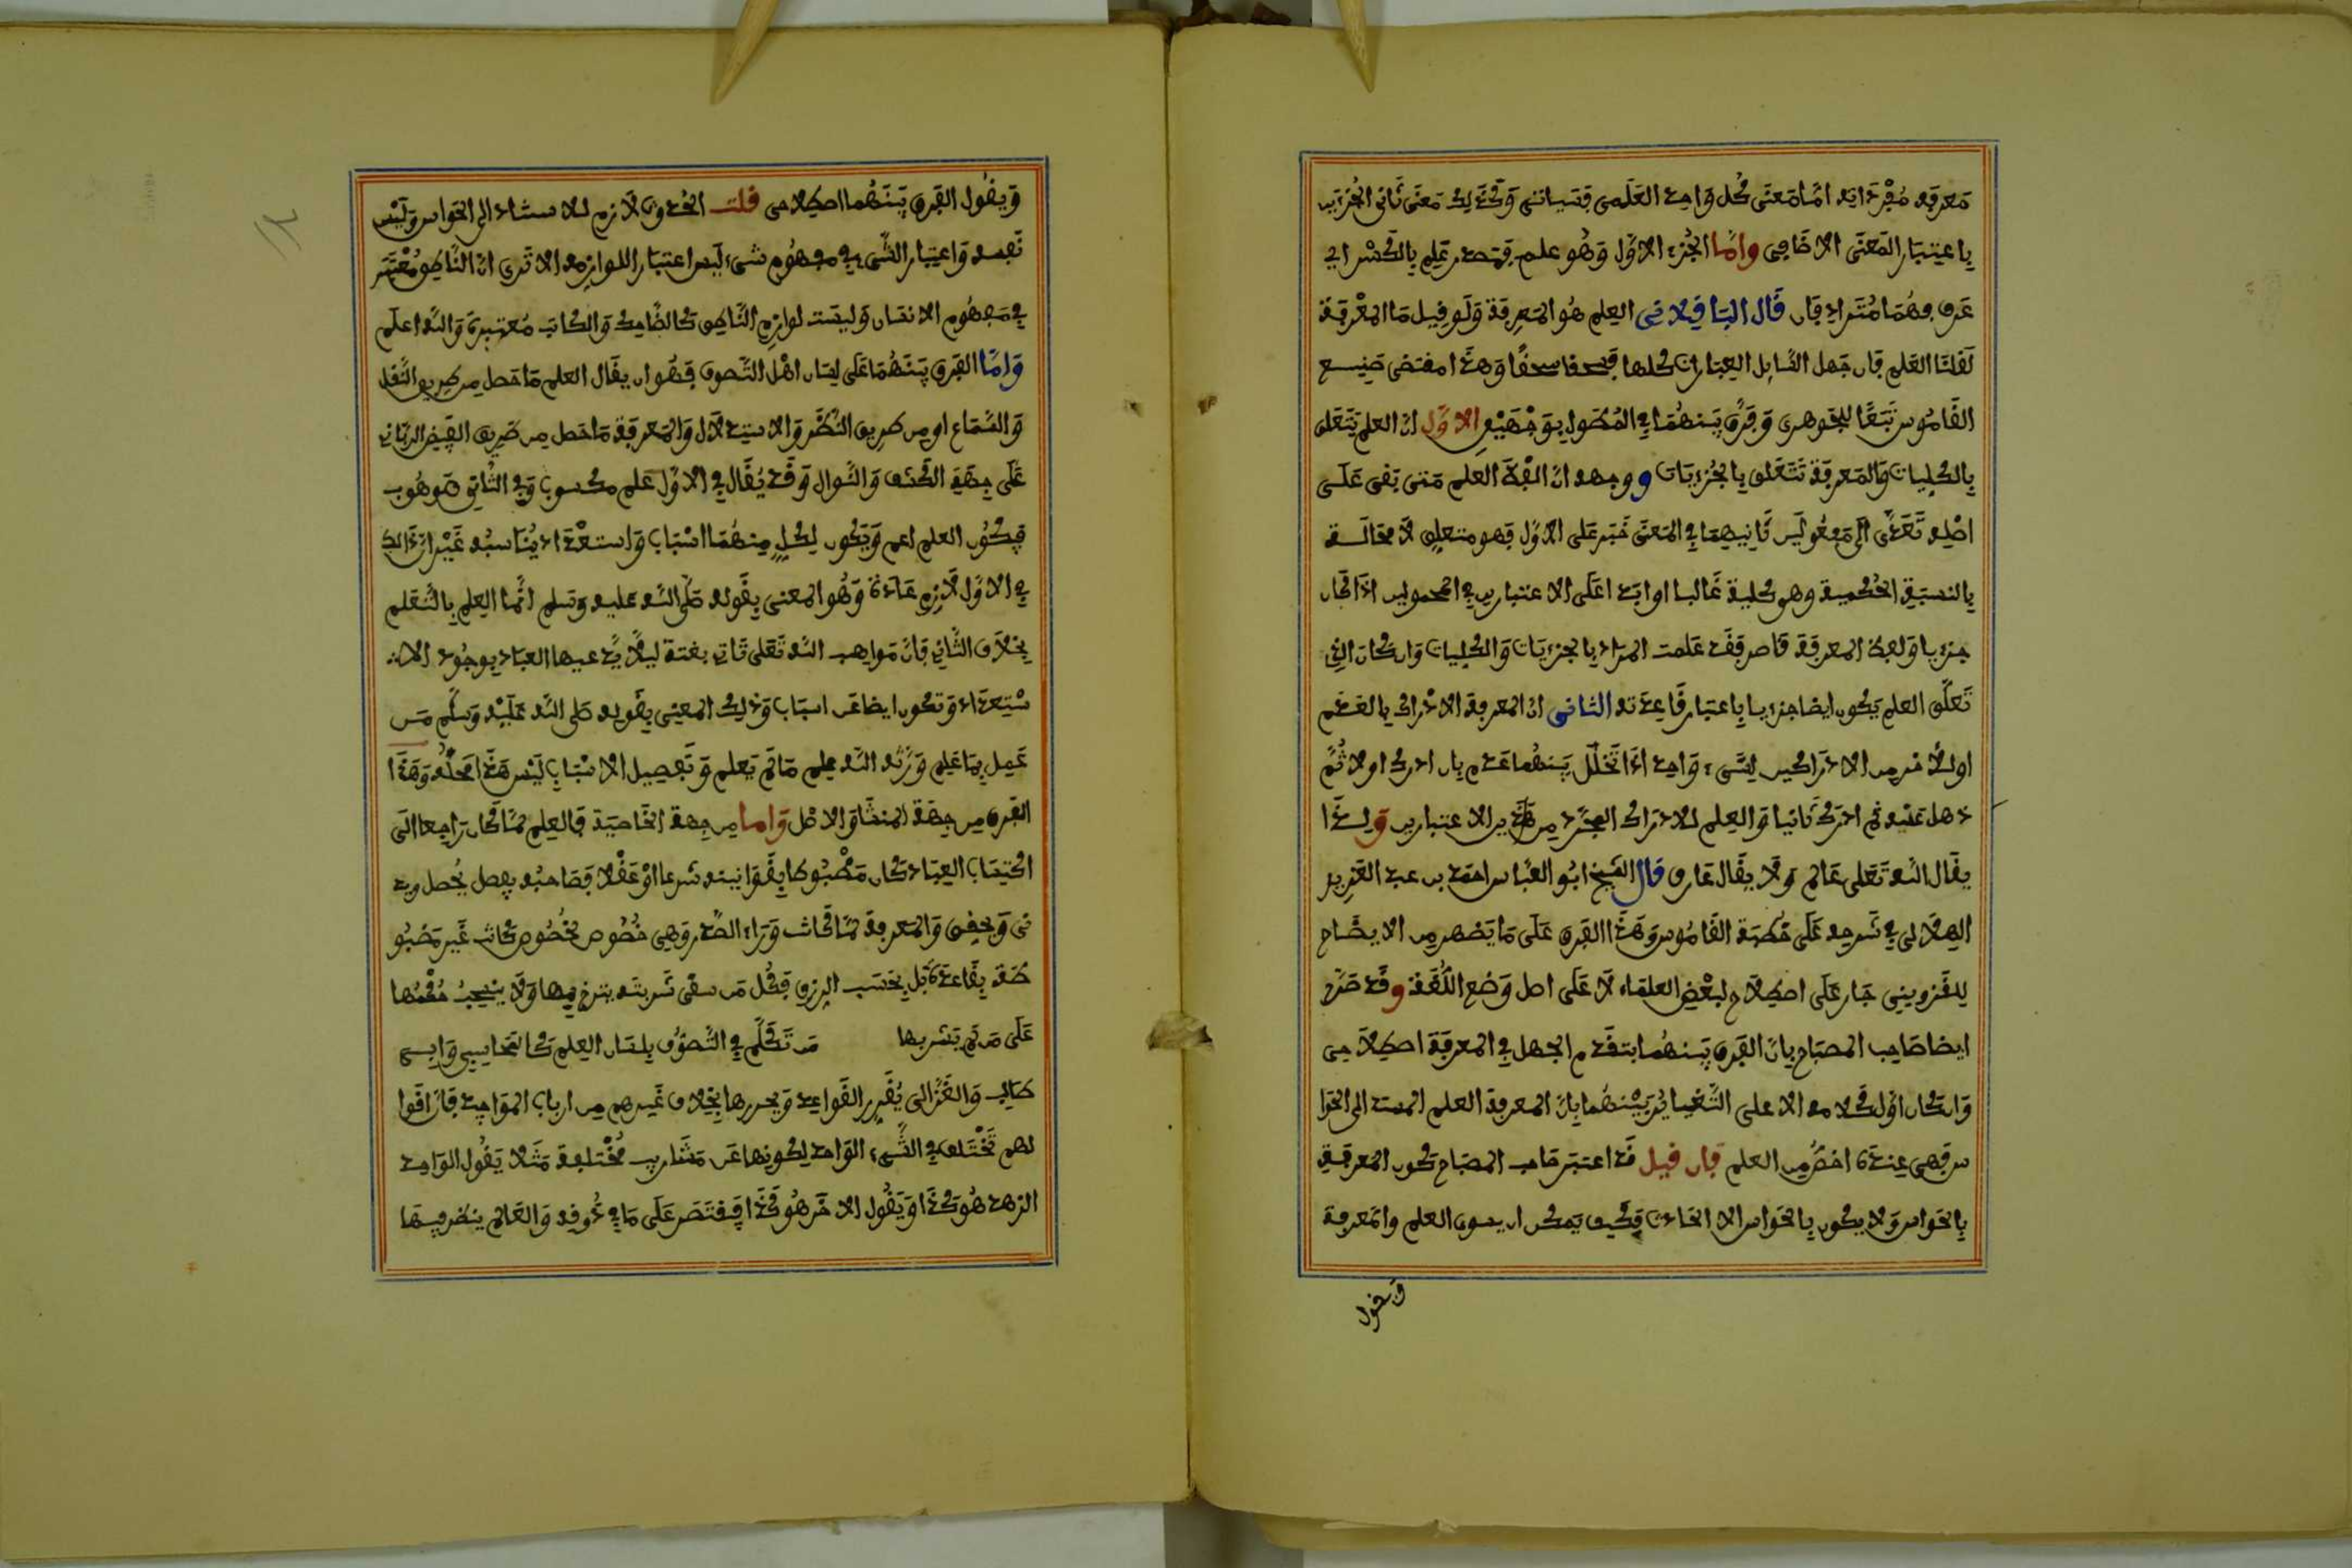 معرفة مفرداته اما معنى كل واحد العلمي فسياتي وكذلك معنى ثاني الجزءين
باعتبار المعنى الاضافي واما الجزء الاول وهو علم فمصدر علم بالكسر اي
عرف فهما مترادفان قال الباقلاني العلم هو المعرفة ولو قيل ما المعرفة
لقلنا العلم فان جهل السايل العبارات كلها فسحقا سحقا وهذا مقتضى صنيع
القاموس تبعا للجوهري وفرق بينهما في المحصول بوجهين الاول ان العلم يتعلق
بالكليات والمعرفة تتعلق بالجزييات ووجهه ان لفظة العلم متى بقى على
اصله تعدى الى مفعولين ثانيهما في المعنى خبر على الاول فهو متعلق لا محالة
بالنسبة الحكمية وهو كلية غالبا او ابدا على الاعتبارين في المحمولين اذا كان
جزييا ولفظ المعرفة قاصر فقد علمت المراد بالجزييات والكليات وان كان الذي
تعلق العلم يكون ايضا جزييا باعتبار قاعدته الثاني ان المعرفة الادراك بالعدم
او للاخر من الادراكين لشيء واحد اذا تخلل بينهما عدم بان ادرك اولا ثم
ذهل عنه ثم ادرك ثانيا والعلم للادراك المجرد من هذين الاعتبارين ولذا
يقال الله تعلى عالم ولا يقال عارف قال الشيخ ابو العباس احمد بن عبد العزيز
الهلالي في شرحه على خطبة القاموس وهذا الفرق على ما يظهر من الايضاح
للقزويني جار على اصطلاح لبعض العلماء لا على اصل وضع اللغة وقد صرح
ايضا صاحب المصباح بان الفرق بينهما بتقدم الجهل في المعرفة اصطلاحي
وان كان اول كلامه الا على التغاير بينهما بان المعرفة العلم المستند الى الحوا
س فهي عنده اخص من العلم فان قيل قد اعتبر صاحب المصباح كون المعرفة
بالحواس ولا يكون بالحواس الا الحادث فكيف يمكن ان يسوى العلم والمعرفة
ويقول
ويقول الفرق بينهما اصطلاحي قلت الحدوث لازم للاستناد الى الحواس وليس
نفسه واعتبار الشيء في مفهوم شيء ليس اعتبار اللوازمه الا ترى ان الناطق معتبر
في مفهوم الانسان وليست لوازم الناطق كالضاحك والكاتب معتبرة والله اعلم
واما الفرق بينهما على لسان اهل التصوف فهو ان يقال العلم ما حصل من طريق النقل
والسماع او من طريق النظر والاستدلال والمعرفة ما حصل من طريق الفيض الرباني
على جهة الكشف والنوال وقد يقال في الاول علم مكسوب وفي الثاني موهوب
فيكون العلم اعم ويكون لكل منهما اسباب واستعداد يناسبه غير ان ذالك
في الاول لازم عادة وهو المعني بقوله صلى الله عليه وسلم انما العلم بالتعلم
بخلاف الثاني فان مواهب الله تعلى تاتي بغتة ليلا يدعيها العباد بوجود الا
ستعداد وتكون ايضا عن اسباب وذلك المعني بقوله صلى الله عليه وسلم من
عمل بما علم ورثه الله علم ما لم يعلم وتفصيل الاسباب ليس هذا محله وهذا
الفرق من جهة المنشا والاصل واما من جهة الخاصية فالعلم لما كان راجعا الى
اكتساب العباد كان مضبوطا بقوانينه شرعا او عقلا فصاحبه يفصل يحصل ويد
نى ويخفي والمعرفة لما كانت وراء الصدر وهي خصوص لخصوص كانت غير مضبو
طة بقاعدة بل بحسب الرزق فكل من سقى شربته يترنم بها ولا ينبغي
على من لم يشربها من تكلم في التصوف بلسان العلم كالمحاسبي وابي
طالب والغزالي يقرر القواعد ويحررها بخلاف غيرهم من ارباب المواجد فان اقوا
لهم تختلف في الشيء الواحد لكونها عن مشارب مختلفة مثلا يقول الواحد
الزهد هو كذا ويقول الاخر هو كذا فيقتصر على ما في ذوقه والعالم ينظر فيها